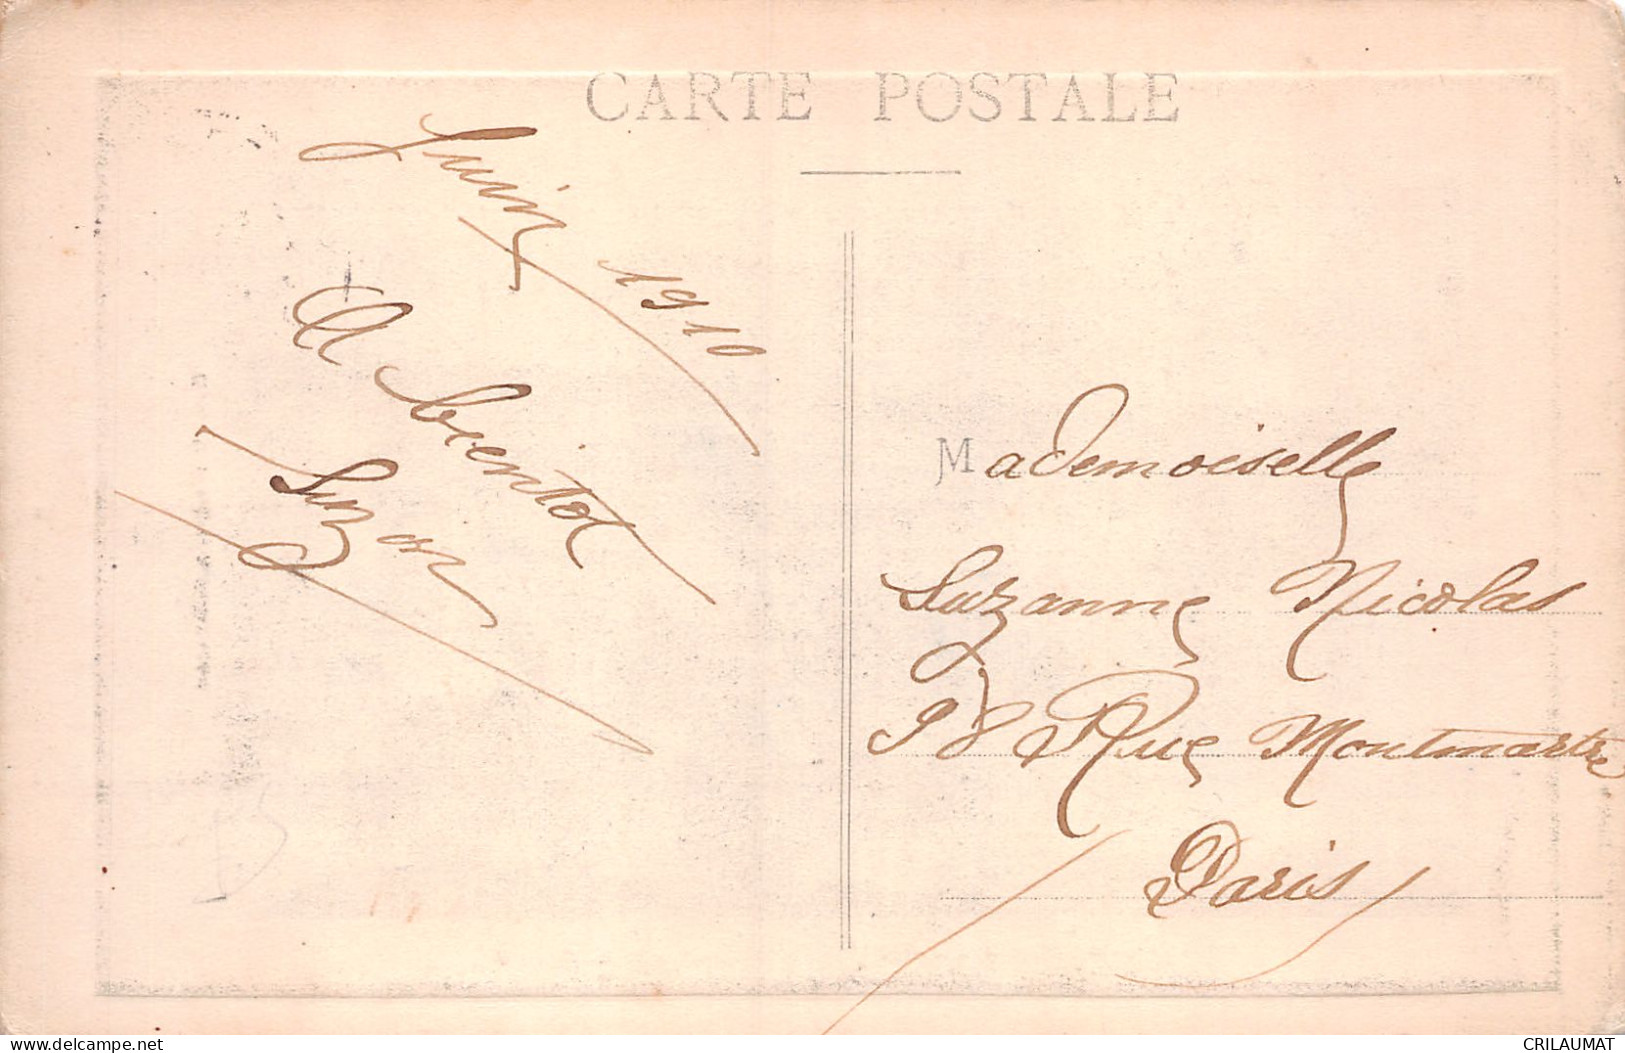 CARTE POSTALE
Juin 1910
A bientot
Suzon
Mademoiselle
Suzanne Nicolas
98 Rue Montmartre
Paris
www.delcampe.net
CRILAUMAT